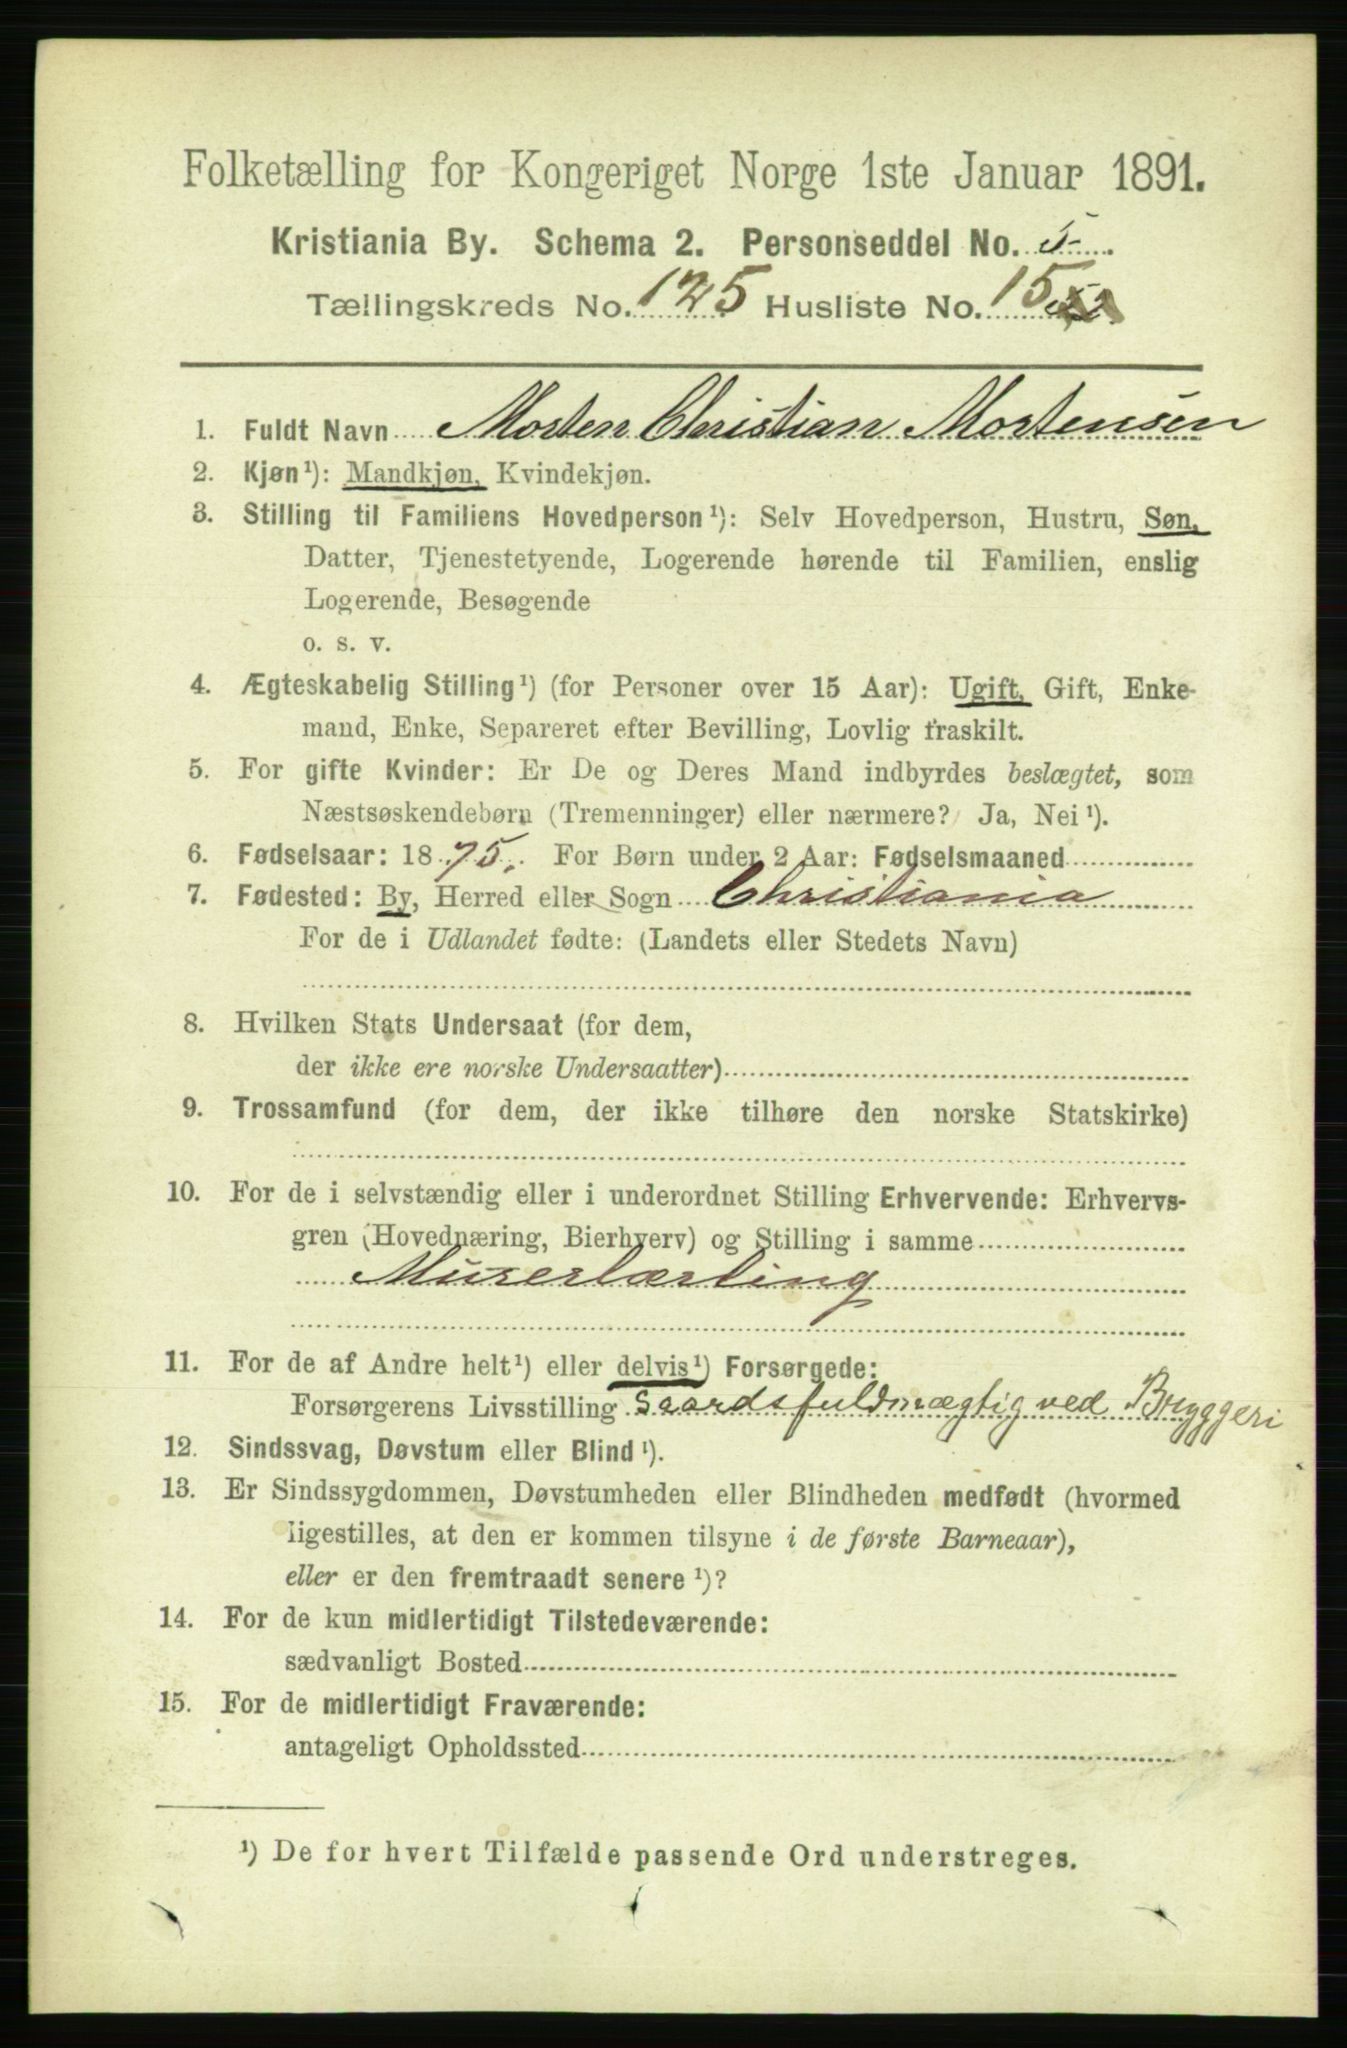 Folketælling for Kongeriget Norge 1ste Januar 1891.
Kristiania By. Schema 2. Personseddel No. 5
Tællingskreds No. 125 Husliste No. 15
1. Fuldt Navn Morten Christian Mortensen
2. Kjøn¹): Mandkjøn, Kvindekjøn.
3. Stilling til Familiens Hovedperson¹): Selv Hovedperson, Hustru, Søn,
Datter, Tjenestetyende, Logerende hørende til Familien, enslig
Logerende, Besøgende
o. s. v.
4. Ægteskabelig Stilling¹) (for Personer over 15 Aar): Ugift, Gift, Enke-
mand, Enke, Separeret efter Bevilling, Lovlig fraskilt.
5. For gifte Kvinder: Er De og Deres Mand indbyrdes beslægtet, som
Næstsøskendebørn (Tremenninger) eller nærmere? Ja, Nei¹).
6. Fødselsaar: 1875. For Børn under 2 Aar: Fødselsmaaned
7. Fødested: By, Herred eller Sogn Christiania
For de i Udlandet fødte: (Landets eller Stedets Navn)
8. Hvilken Stats Undersaat (for dem,
der ikke ere norske Undersaatter)
9. Trossamfund (for dem, der ikke tilhøre den norske Statskirke)
10. For de i selvstændig eller i underordnet Stilling Erhvervende: Erhvervs-
gren (Hovednæring, Bierhverv) og Stilling i samme
Murerlærling
11. For de af Andre helt¹) eller delvis¹) Forsørgede:
Forsørgerens Livsstilling Gaardsfuldmægtig ved Bryggeri
12. Sindssvag, Døvstum eller Blind¹).
13. Er Sindssygdommen, Døvstumheden eller Blindheden medfødt (hvormed
ligestilles, at den er kommen tilsyne i de første Barneaar),
eller er den fremtraadt senere¹)?
14. For de kun midlertidigt Tilstedeværende:
sædvanligt Bosted
15. For de midlertidigt Fraværende:
antageligt Opholdssted
¹) De for hvert Tilfælde passende Ord understreges.